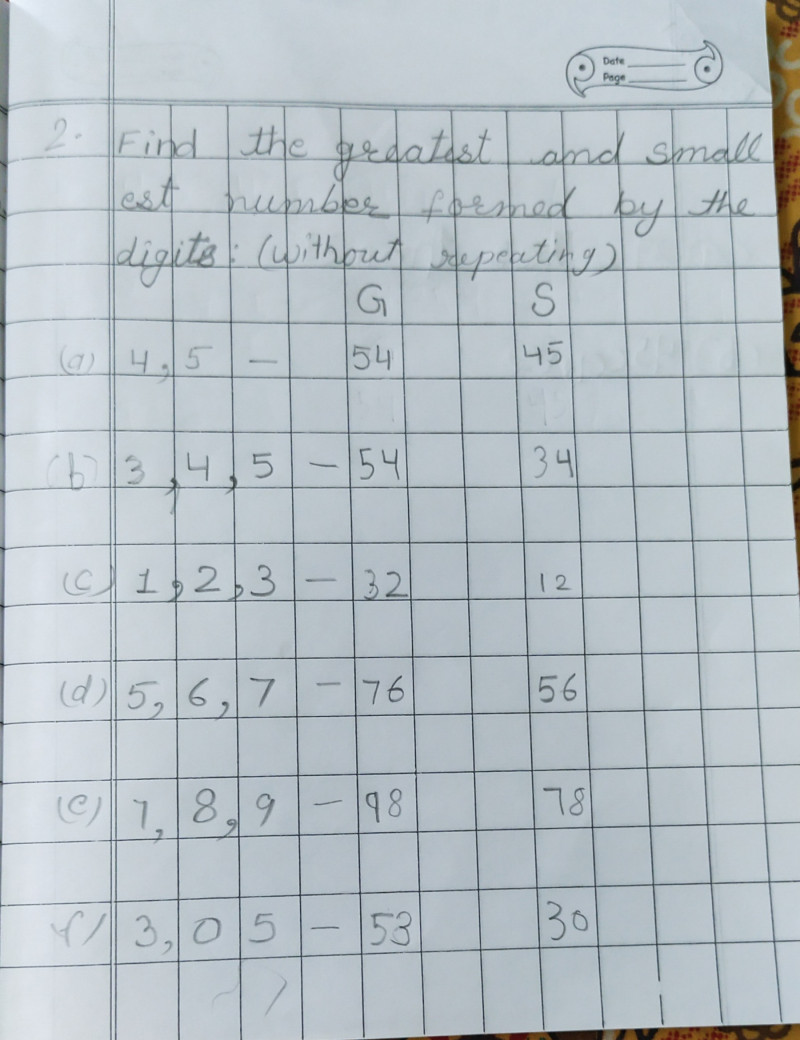 Date
Page
2. Find the greatest and small
est number formed by the
digits: (without repeating)
G S
(a) 4, 5 — 54 45
(b) 3, 4, 5 — 54 34
(c) 1, 2, 3 — 32 12
(d) 5, 6, 7 — 76 56
(e) 7, 8, 9 — 98 78
(f) 3, 0 5 — 53 30